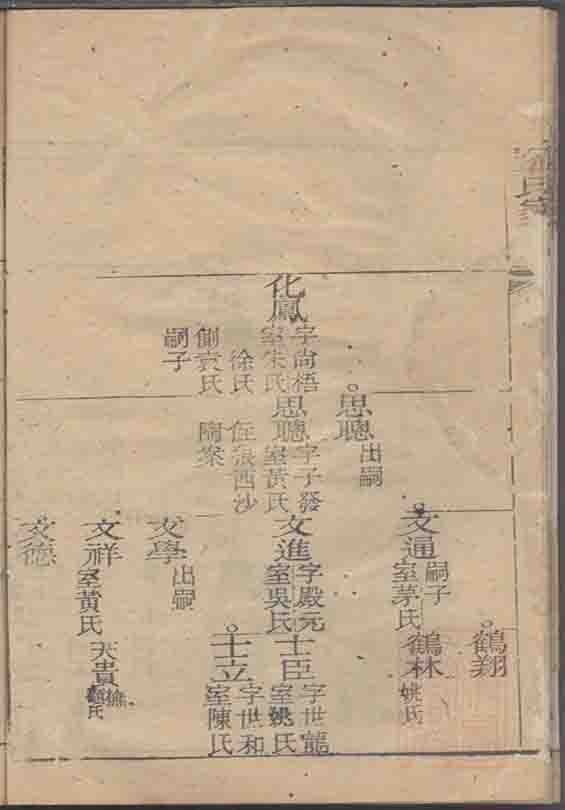 化鳳
字尚梧
室朱氏
徐氏
側袁氏
嗣子
思聰
出嗣
思聰
字子發
室黃氏
住張西沙
隋案
文通
嗣子
室茅氏
文進
字殿元
室吳氏
文學
出嗣
文祥
室黃氏
文德
鶴翔
鶴林
姚氏
士臣
字世龍
室姚氏
士立
字世和
室陳氏
天貴